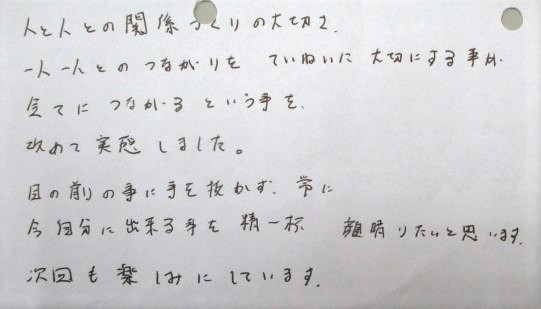 人と人との関係づくりの大切さ、
一人一人とのつながりを ていねいに 大切にする事が、
全てに つながる という事を、
改めて実感しました。
目の前の事に手を抜かず、常に
今自分に出来る事を 精一杯 頑晴りたいと思います。
次回も楽しみにしています。